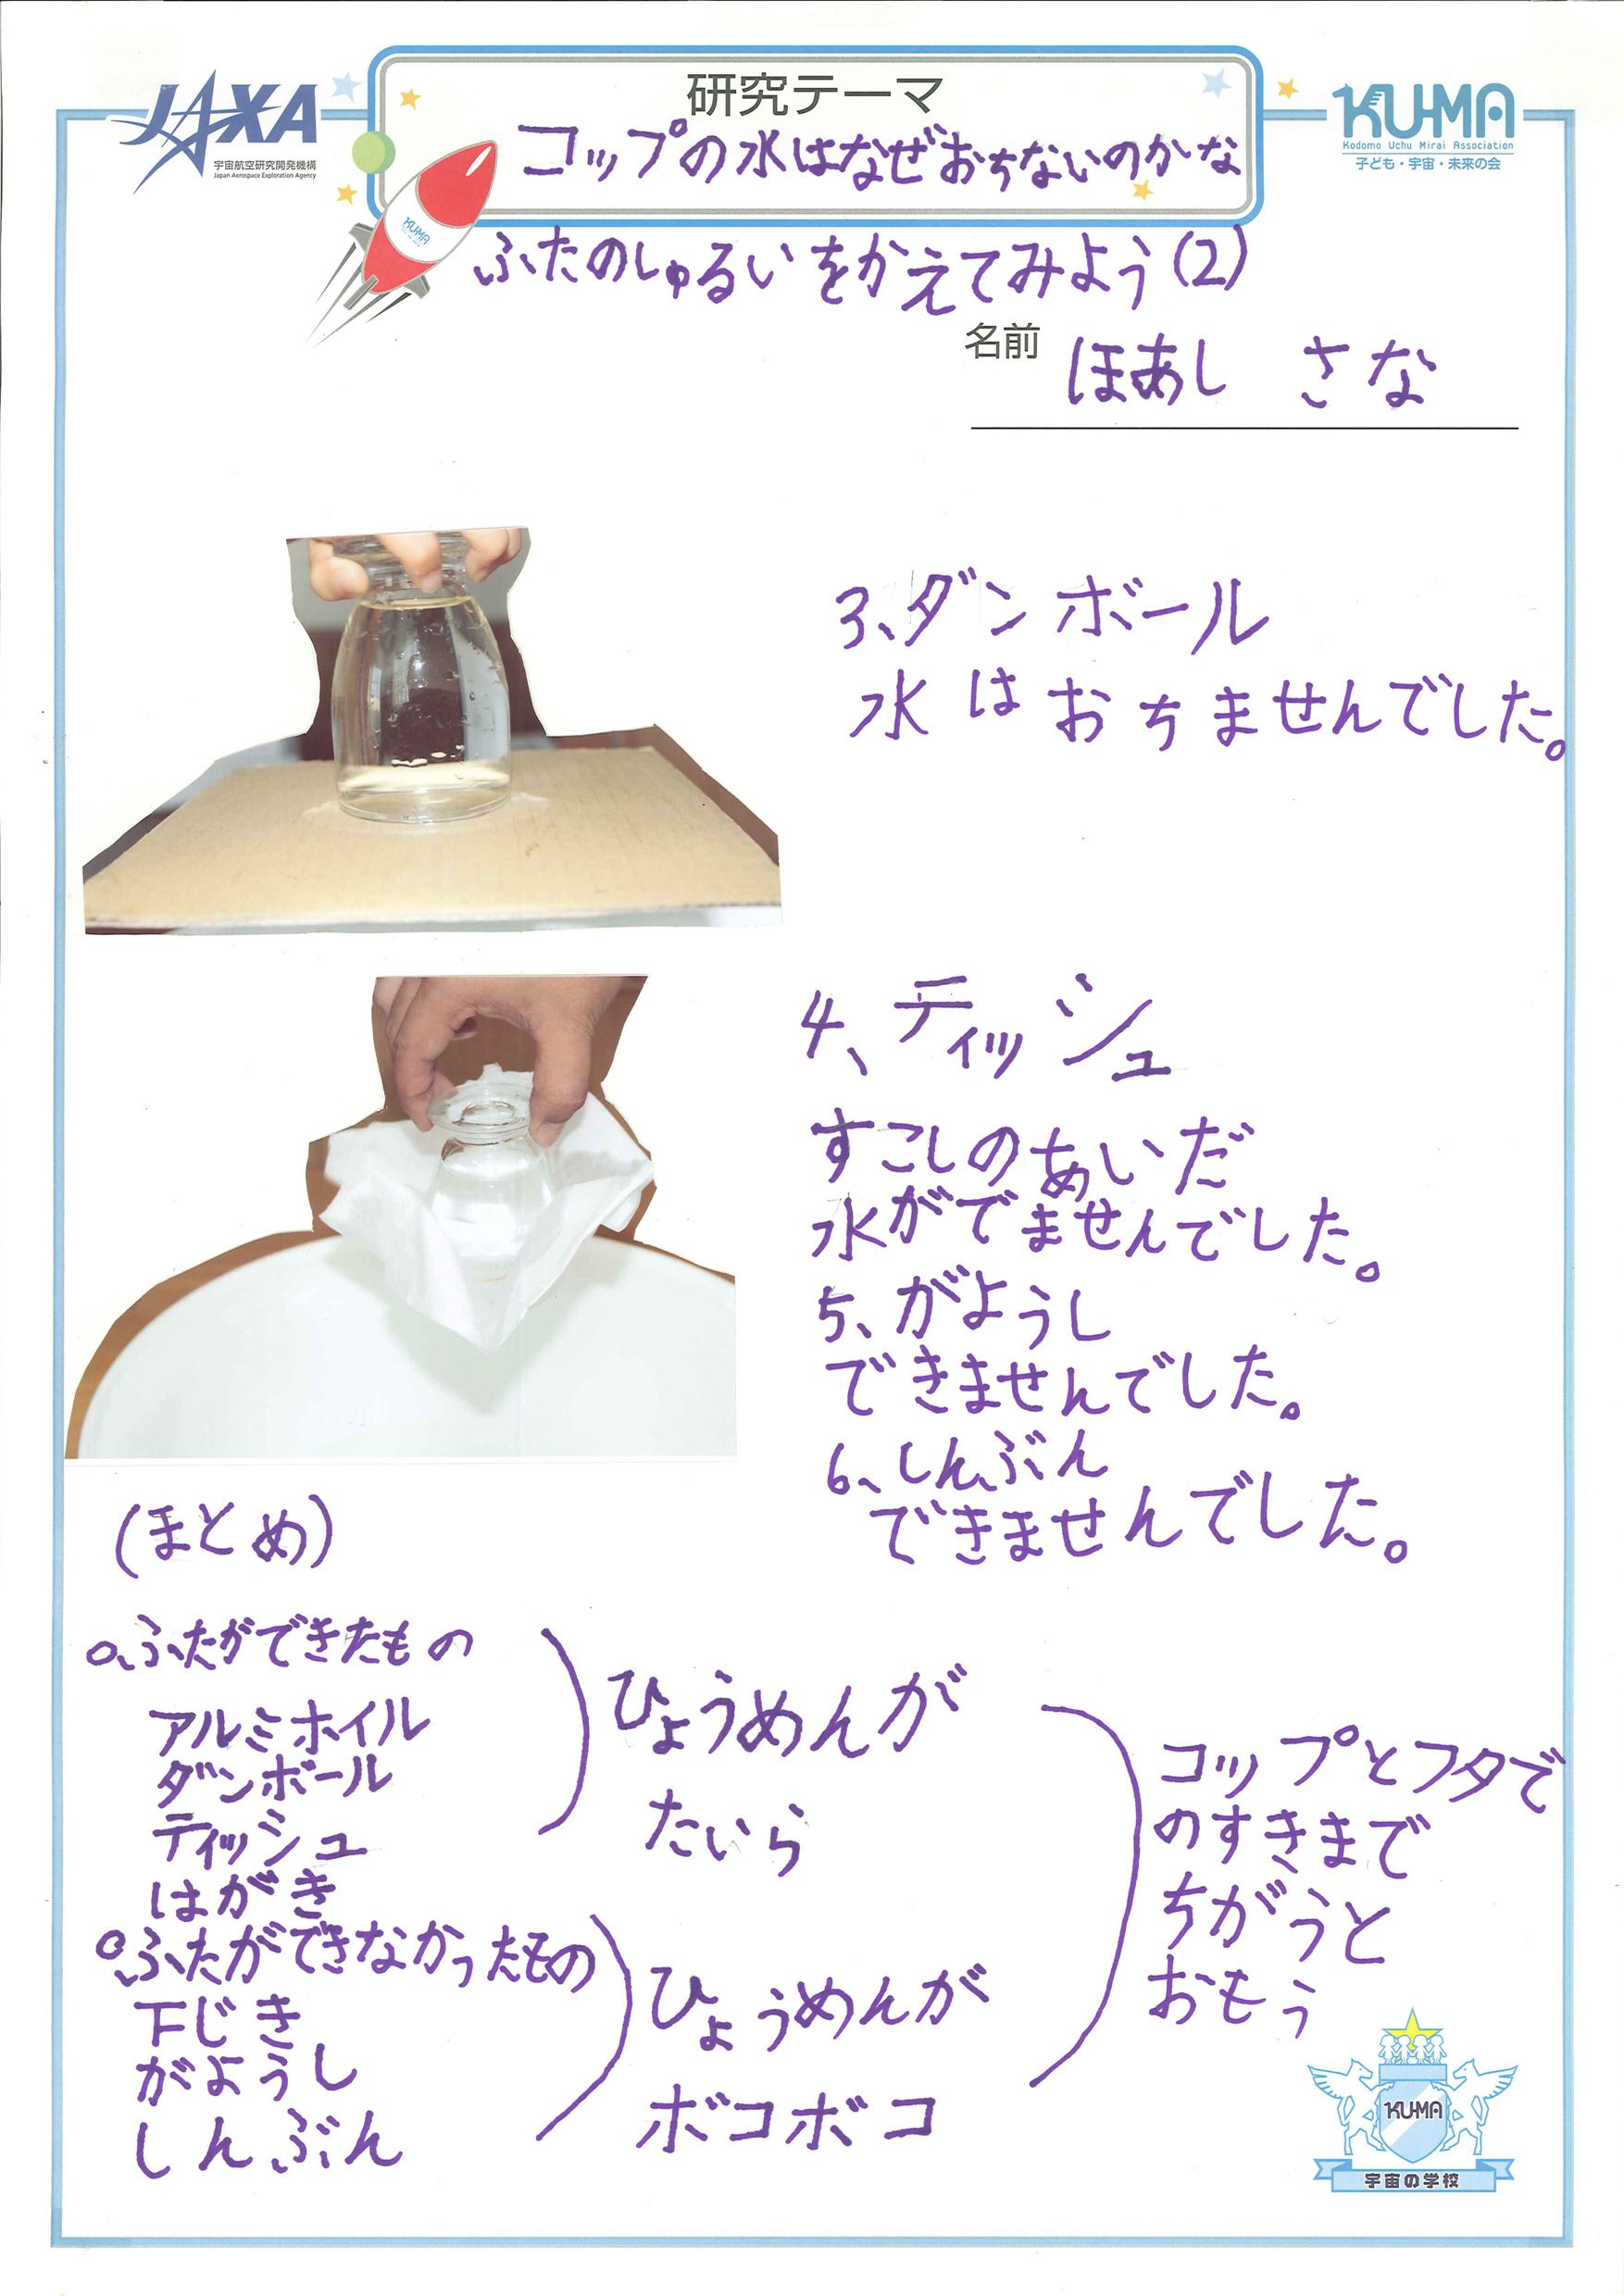 JAXA
宇宙航空研究開発機構
Japan Aerospace Exploration Agency
研究テーマ
コップの水はなぜおちないのかな
KU-MA
Kodomo Uchu Mirai Association
子ども・宇宙・未来の会
KU-MA
ふたのしゅるいをかえてみよう(2)
名前 ほあし さな
3、ダンボール
水はおちませんでした。
4、ティッシュ
すこしのあいだ
水がでませんでした。
5、がようし
できませんでした。
6、しんぶん
できませんでした。
(まとめ)
○、ふたができたもの
アルミホイル
ダンボール
ティッシュ
はがき
ひょうめんが
たいら
○、ふたができなかったもの
下じき
がようし
しんぶん
ひょうめんが
ボコボコ
コップとフタで
のすきまで
ちがうと
おもう
KU-MA
宇宙の学校